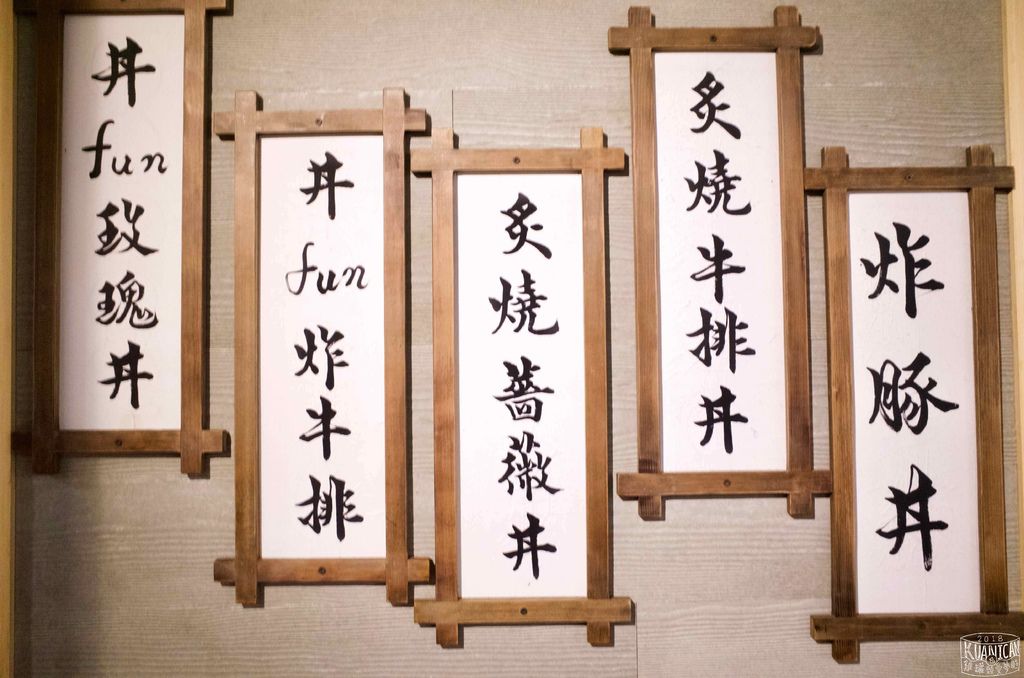 丼fun玫瑰丼
丼fun炸牛排
炙燒薔薇丼
炙燒牛排丼
炸豚丼
2018
KUANICAN